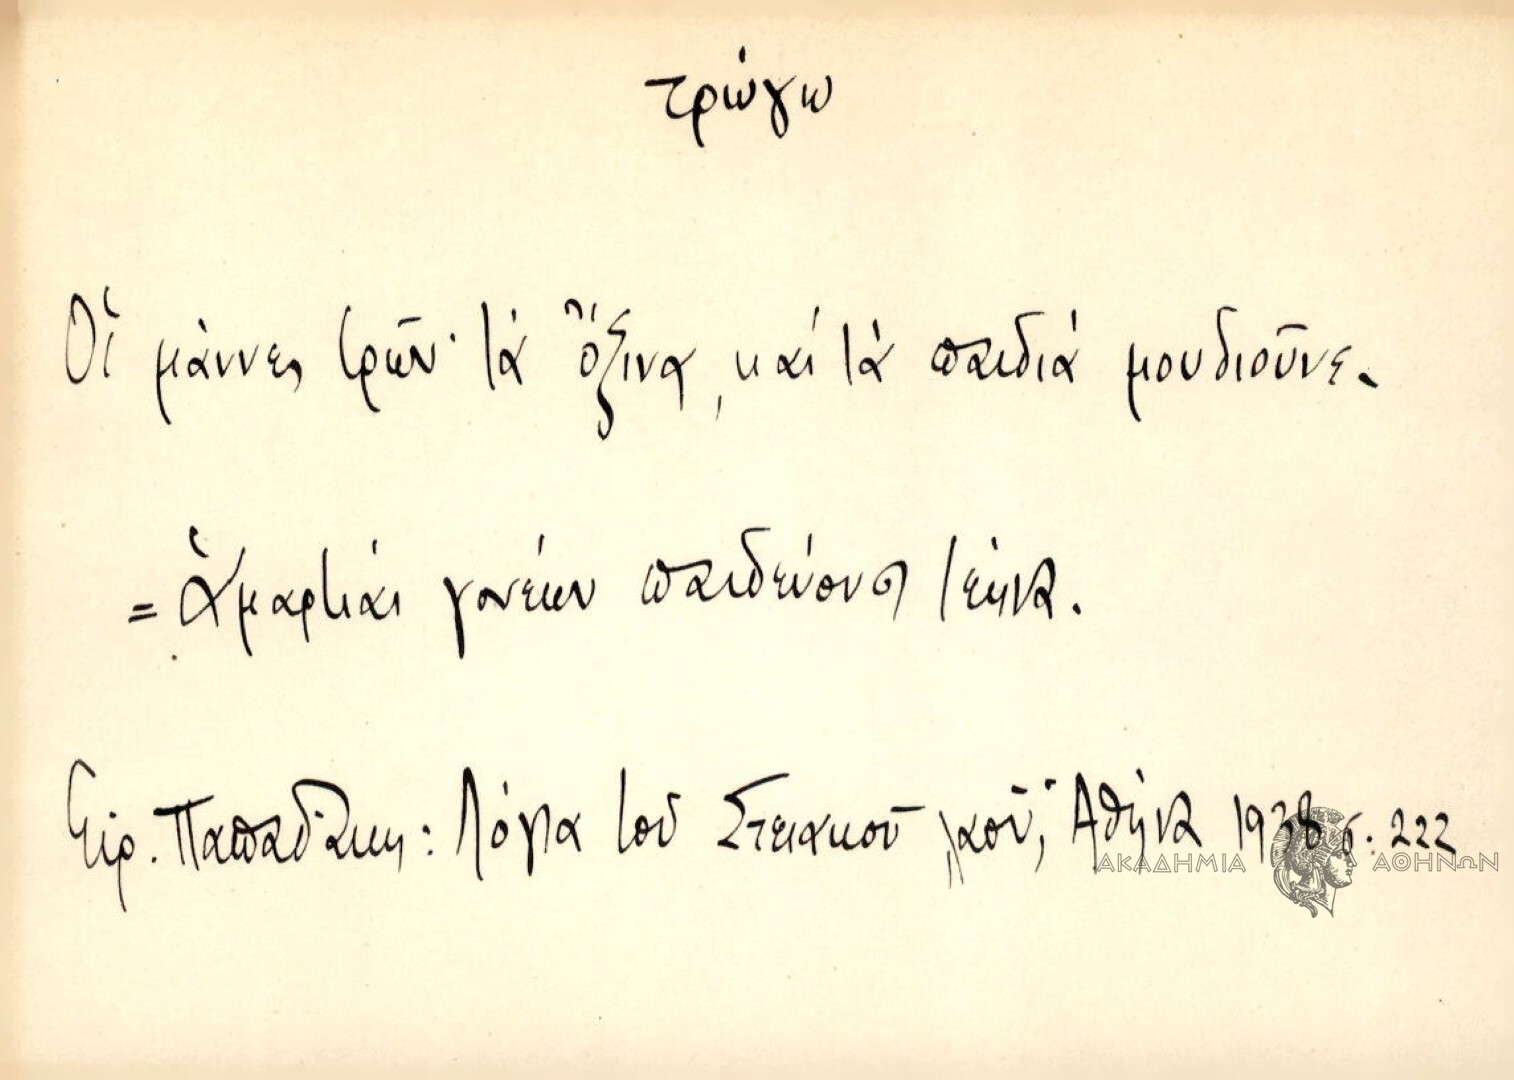 τρώγω
Οἱ μάννες τρῶν' τὰ ὄξινα, καὶ τὰ παιδιά μουδιοῦνε.
= Ἁμαρτίαι γονέων παιδεύουσι τέκνα.
Εἰρ. Παπαδάκη: Λόγια τοῦ Στειακοῦ λαοῦ, Ἀθήνα 1938 σ. 222
ΑΚΑΔΗΜΙΑ ΑΘΗΝΩΝ